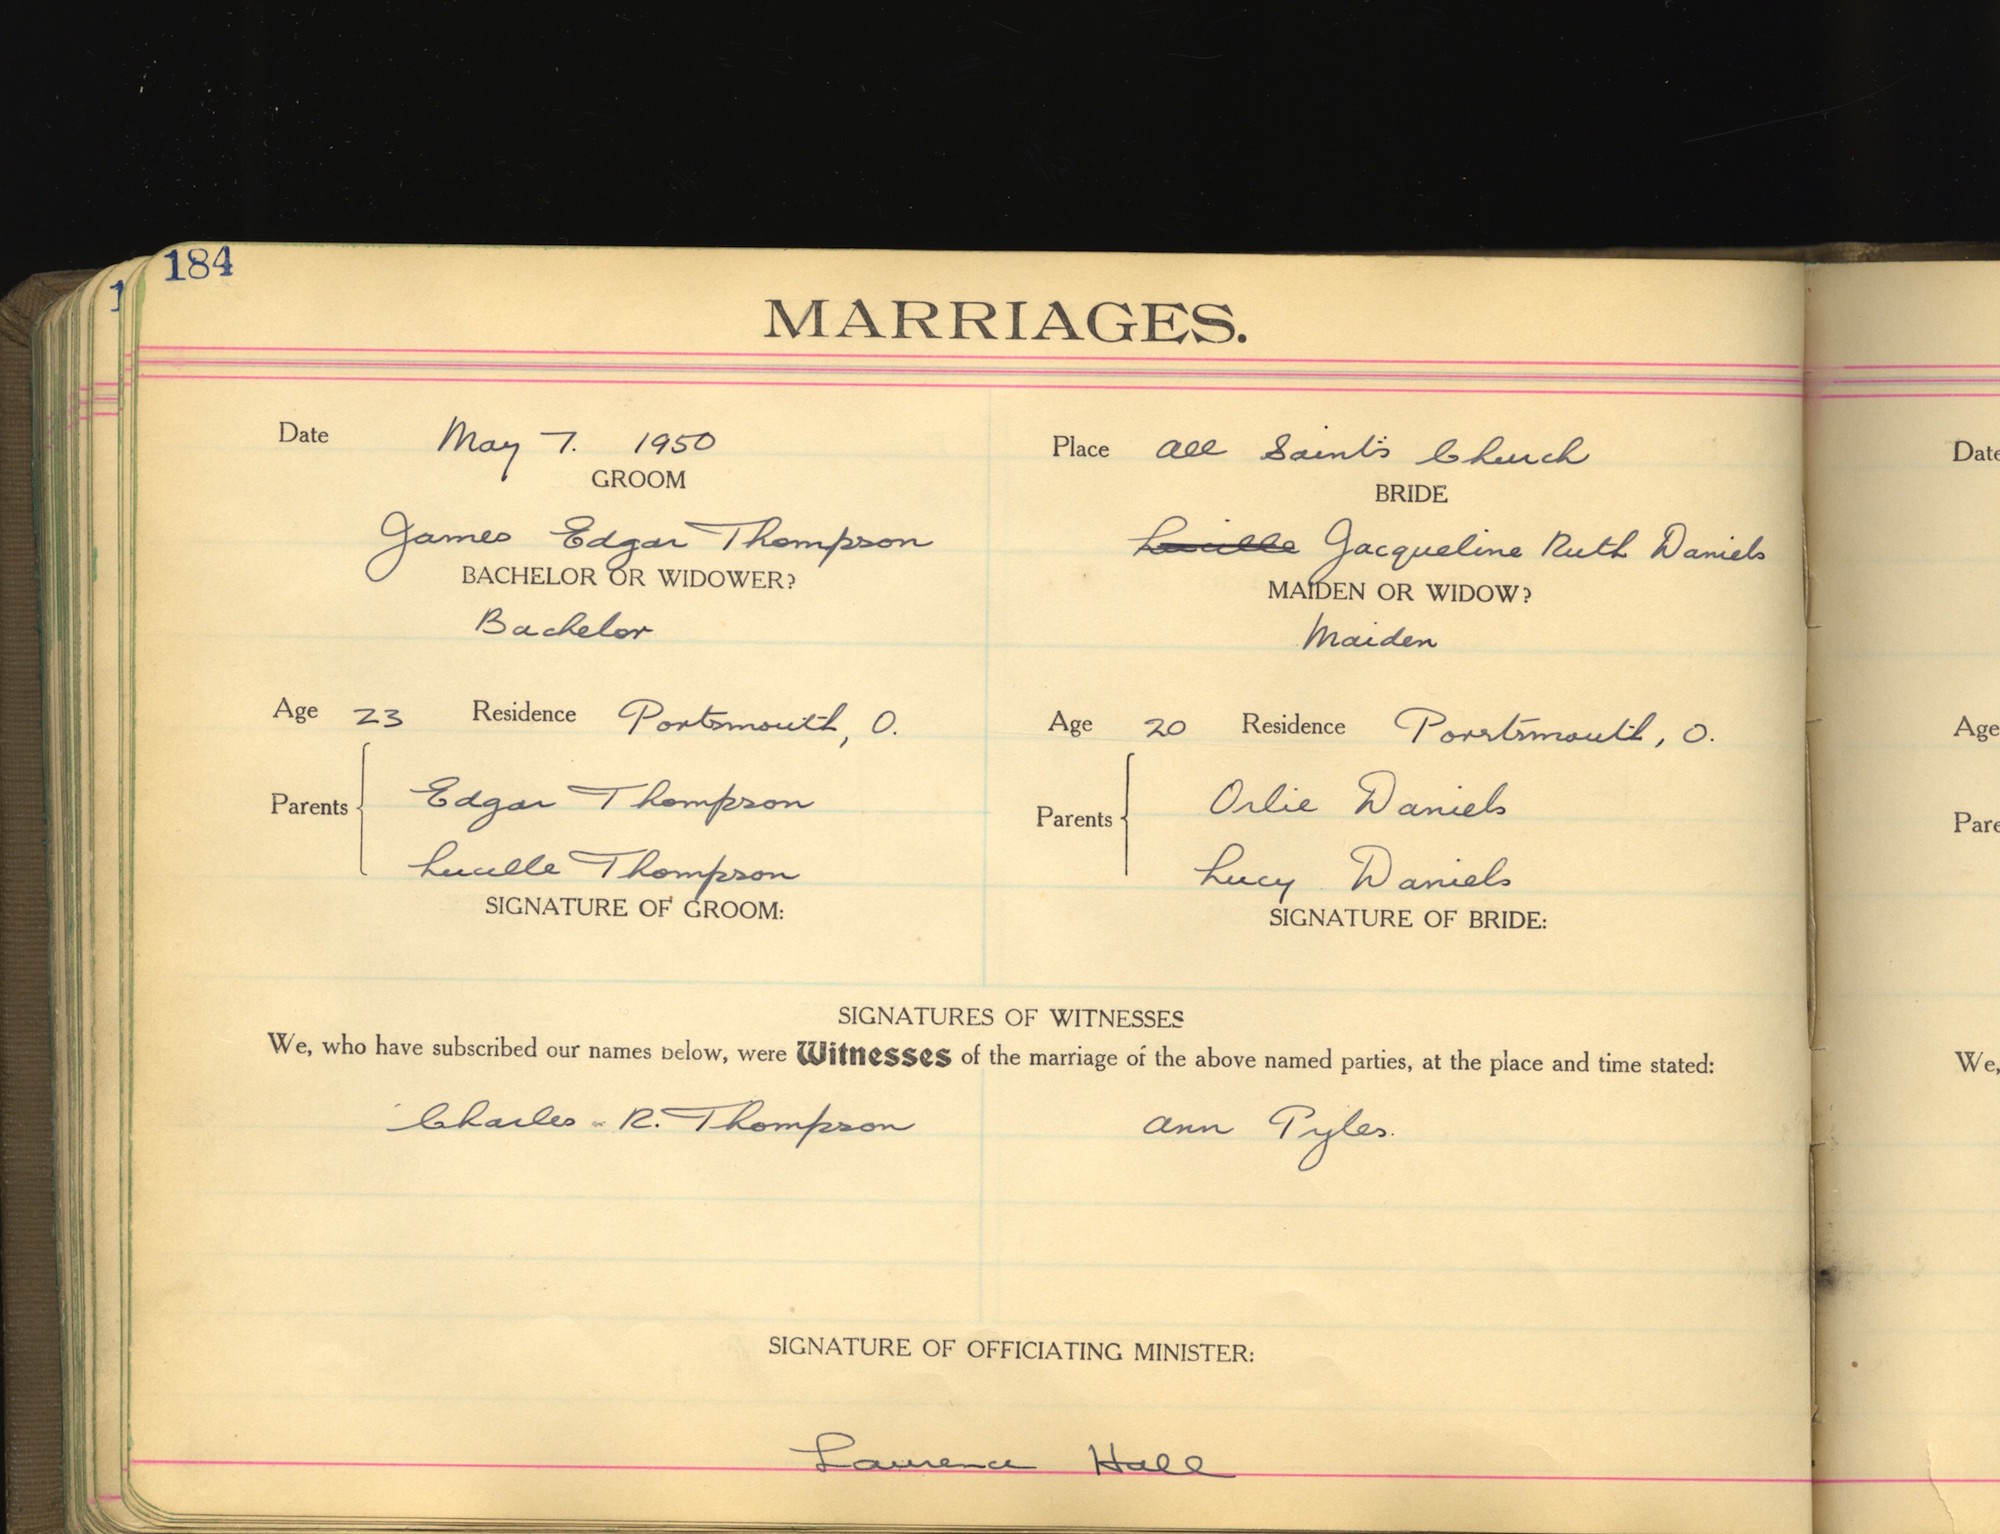 184
1
MARRIAGES.
Date May 7. 1950
Place All Saint's Church
GROOM
BRIDE
James Edgar Thompson
Lucille Jacqueline Ruth Daniels
BACHELOR OR WIDOWER?
MAIDEN OR WIDOW?
Bachelor
Maiden
Age 23 Residence Portsmouth, O.
Age 20 Residence Porstsmouth, O.
Parents
Edgar Thompson
Lucille Thompson
Parents
Orlie Daniels
Lucy Daniels
SIGNATURE OF GROOM:
SIGNATURE OF BRIDE:
SIGNATURES OF WITNESSES
We, who have subscribed our names below, were Witnesses of the marriage of the above named parties, at the place and time stated:
Charles R. Thompson
Ann Pyles.
SIGNATURE OF OFFICIATING MINISTER:
Laurence Hall
Date
Age
Pare
We,